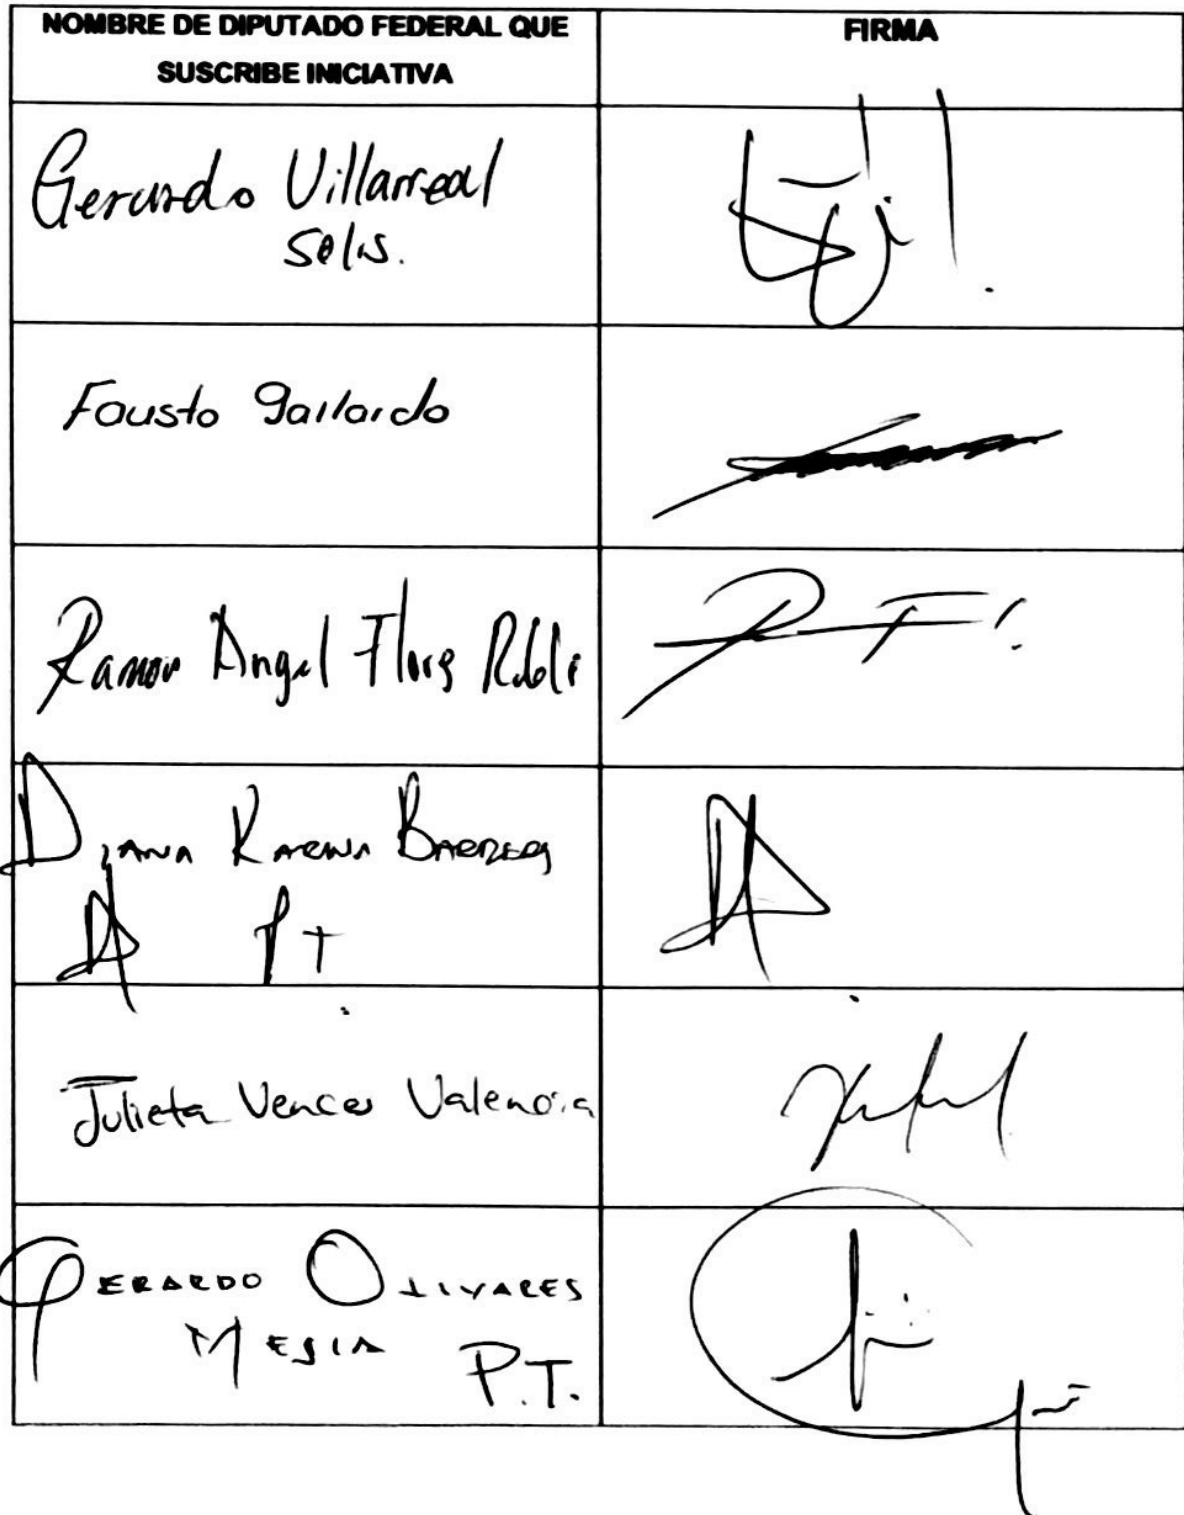 NOMBRE DE DIPUTADO FEDERAL QUE
SUSCRIBE INICIATIVA
FIRMA
Gerardo Villarreal
Solis.
Fausto Gallardo
Ramon Angel Flores Robles
Diana Karina Barreras
P T
Julieta Vences Valencia
GERARDO OLIVARES
MEJIA
P.T.